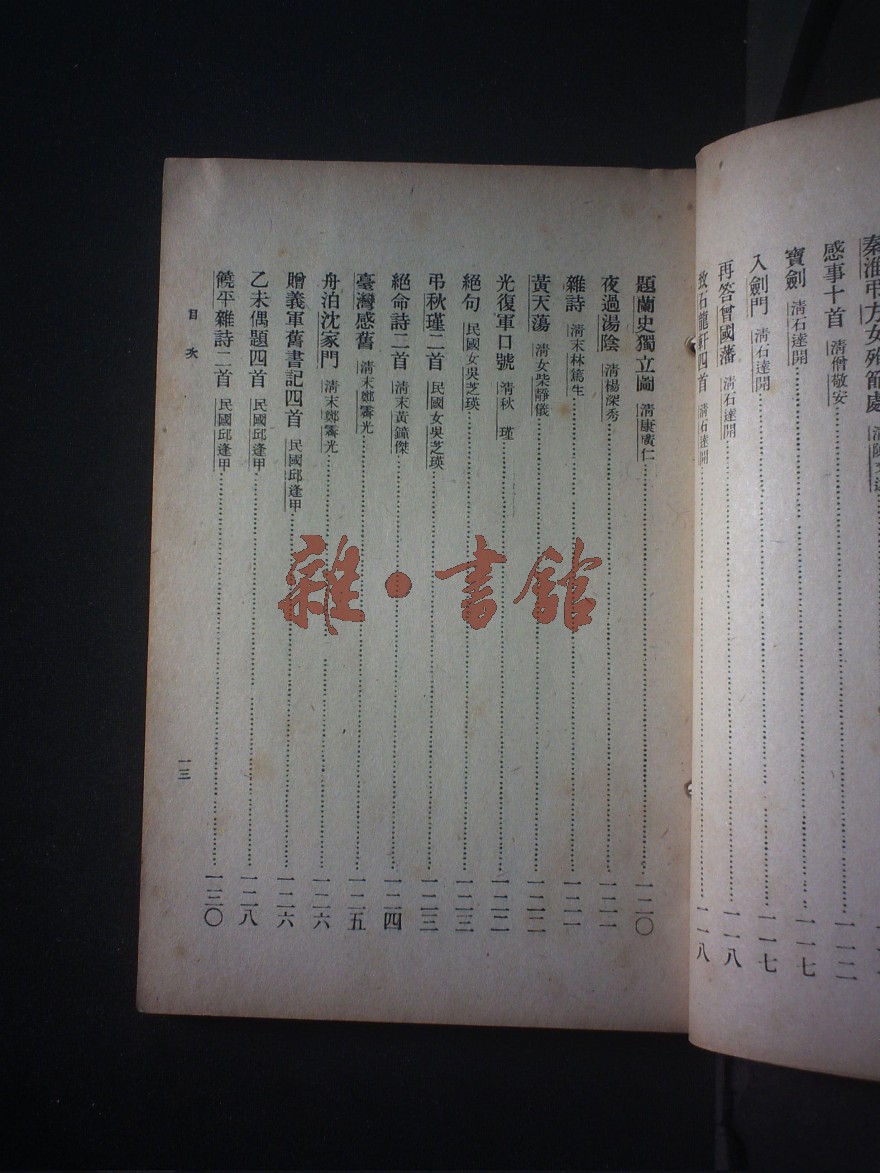 秦淮弔方女殉節處
感事十首 清僧敬安 一一二
寶劍 清石達開 一一七
入劍門 清石達開 一一七
再答曾國藩 清石達開 一一八
致石龍軒四首 清石達開 一一八
題蘭史獨立圖 清康廣仁 一二〇
夜過湯陰 清楊深秀 一二一
雜詩 清末林篤生 一二一
黃天蕩 清女柴靜儀 一二二
光復軍口號 清秋瑾 一二二
絕句 民國女吳芝瑛 一二三
弔秋瑾二首 民國女吳芝瑛 一二三
絕命詩二首 清末黃鐘傑 一二四
臺灣感舊 清末鄭霽光 一二五
舟泊沈家門 清末鄭霽光 一二六
贈義軍舊書記四首 民國邱逢甲 一二六
乙未偶題四首 民國邱逢甲 一二八
饒平雜詩二首 民國邱逢甲 一三〇
目次
一三
雜·書館